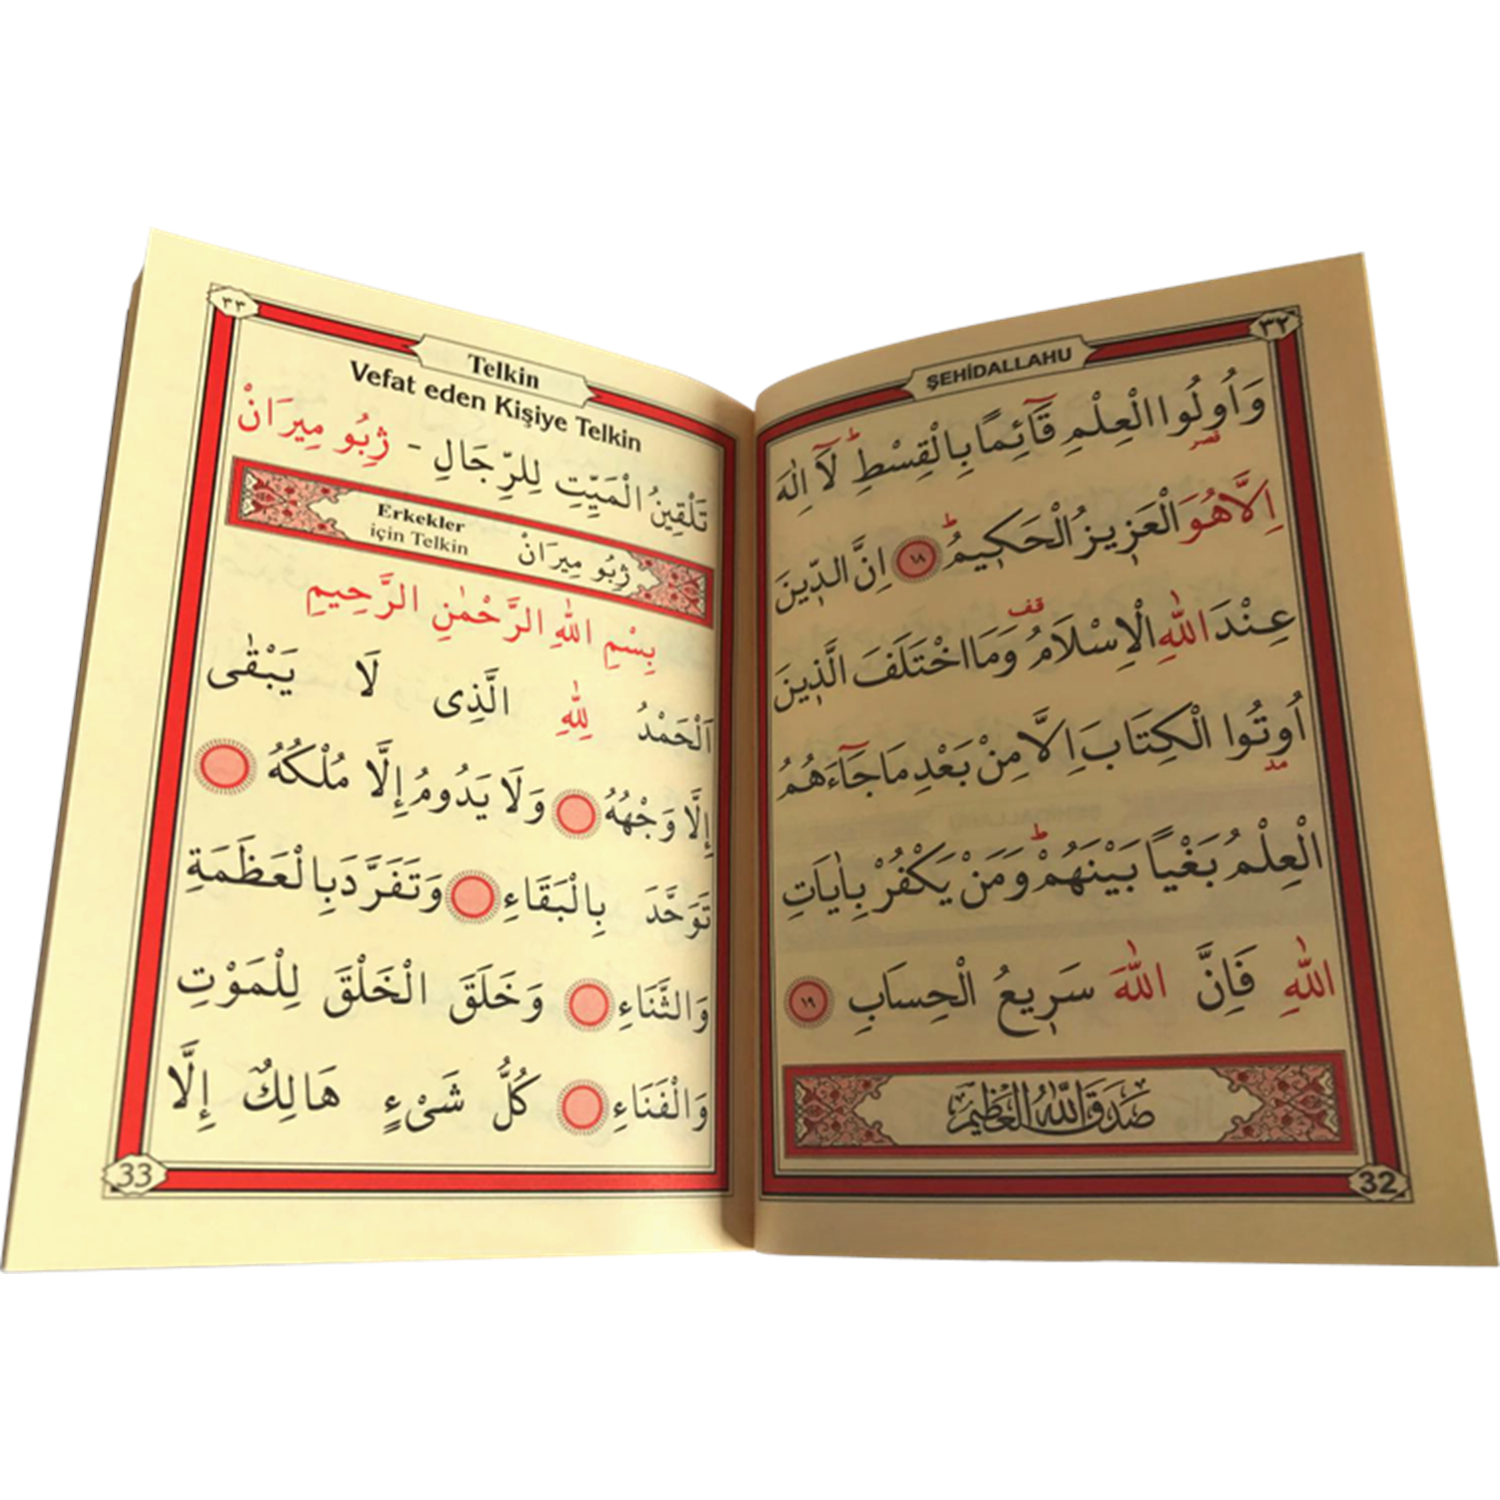 ٣٢
ŞEHİDALLAHU
وَاُو۬لُوا الْعِلْمِ قَٓائِمًا بِالْقِسْطِۜ لَٓا اِلٰهَ
قصر
اِلَّا هُوَ الْعَز۪يزُ الْحَك۪يمُۜ ١٨ اِنَّ الدّ۪ينَ
عِنْدَ اللّٰهِ الْاِسْلَامُ قف وَمَا اخْتَلَفَ الَّذ۪ينَ
اُو۫تُوا الْكِتَابَ اِلَّا مِنْ بَعْدِ مَا جَٓاءَهُمُ
مد
الْعِلْمُ بَغْيًا بَيْنَهُمْۜ وَمَنْ يَكْفُرْ بِاٰيَاتِ
اللّٰهِ فَاِنَّ اللّٰهَ سَر۪يعُ الْحِسَابِ ١٩
صَدَقَ اللّٰهُ الْعَظ۪يمُ
32
٣٣
Telkin
Vefat eden Kişiye Telkin
تَلْقِينُ الْمَيِّتِ لِلرِّجَالِ - ژِبُو مِيرَانْ
Erkekler
için Telkin
ژِبُو مِيرَانْ
بِسْمِ اللّٰهِ الرَّحْمٰنِ الرَّحِيمِ
اَلْحَمْدُ لِلّٰهِ الَّذِى لَا يَبْقٰى
إِلَّا وَجْهُهُ وَلَا يَدُومُ إِلَّا مُلْكُهُ
تَوَحَّدَ بِالْبَقَاءِ وَتَفَرَّدَ بِالْعَظَمَةِ
وَالثَّنَاءِ وَخَلَقَ الْخَلْقَ لِلْمَوْتِ
وَالْفَنَاءِ كُلُّ شَىْءٍ هَالِكٌ إِلَّا
33